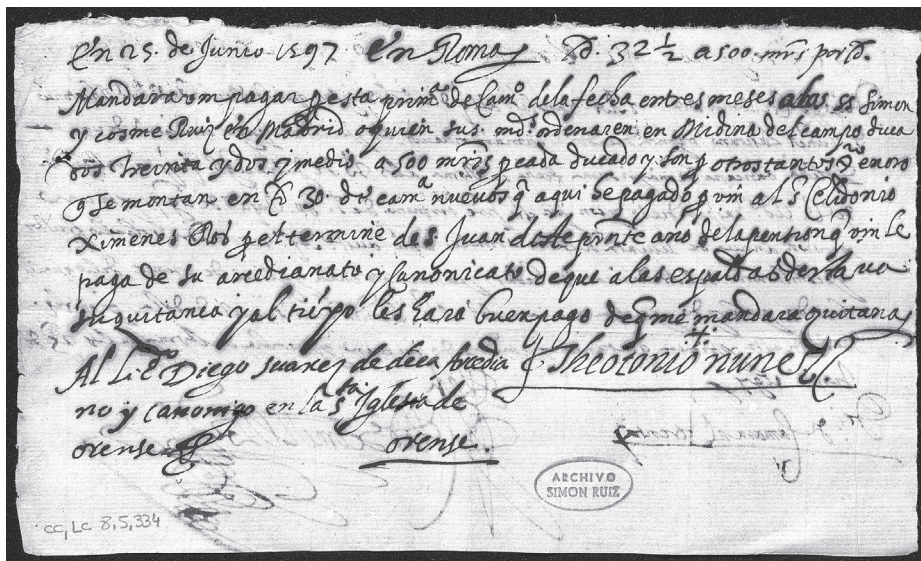 En 25. de Junio 1597 En Roma D. 32 1/2 a 500 mrs por D.
Mandara vm pagar p esta prim.ª de Cam.º de la fecha en tres meses a los ss simon
y cosme Ruiz en Madrid o quien sus md.s ordenaren en Midina del campo duca
dos treinta y dos y medio a 500 mrs p cada ducado y son p otros tantos en oro
q se montan en 30. de cam.ª nuevos q aqui he pagado p vm al s.r Celidonio
Ximenes p el termine de s. Juan deste prnte año de la pension q vm le
paga de su arcedianato y Canonicato de que a las espaldas desta va
su quitança y al tiempo les hara buen pago de q me mandara quitança
Al Lic.do Diego suarez de arcedia Theotonio nunez
no y canonigo en la s.ta Iglesia de
orense orense.
ARCHIVO
SIMON RUIZ
CC, LC 8,5,334